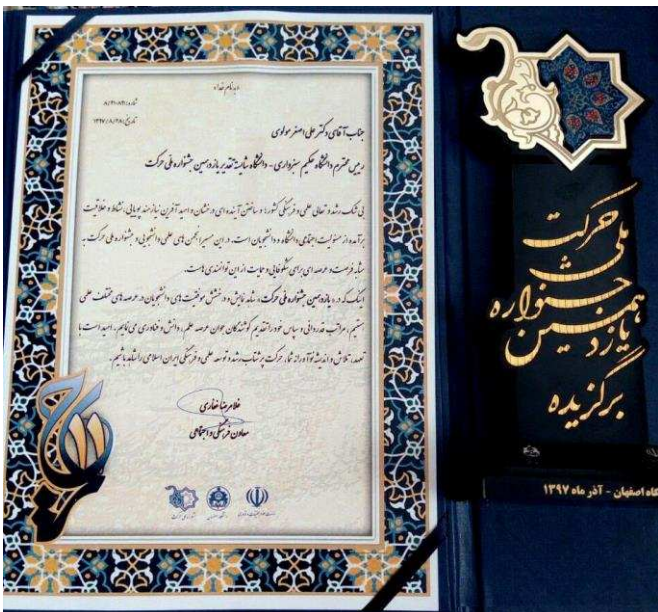 «به نام خدا»
شماره:
تاریخ: ۱۳۹۷/۸/۲۸
جناب آقای دکتر علی اصغر مولوی
رییس محترم دانشگاه حکیم سبزواری - دانشگاه شایسته تقدیر یازدهمین جشنواره ملی حرکت
بی شک رشد و تعالی علمی و فرهنگی کشور؛ و ساختن آینده ای درخشان و امید آفرین نیازمند پویایی، نشاط و خلاقیت
برآمده از مسئولیت اجتماعی دانشگاه و دانشجویان است. در این مسیر انجمن های علمی دانشجویی و جشنواره ملی حرکت به
مثابه فرصت و عرصه ای برای شکوفایی و حمایت از این توانمندی هاست.
اینک که در «یازدهمین جشنواره ملی حرکت» شاهد نمایش و درخشش موفقیت های دانشجویان در عرصه های مختلف علمی
هستیم، مراتب قدردانی و سپاس خود را تقدیم کوشندگان جوان عرصه علم، دانش و فناوری می نمایم. امید است با
تعهد، تلاش و اندیشه نوآورانه شما، حرکت پرشتاب رشد و توسعه علمی و فرهنگی ایران اسلامی را شاهد باشیم.
غلامرضا غفاری
معاون فرهنگی و اجتماعی
حرکت
ملی
جشنواره
یازدهمین
برگزیده
گاه اصفهان - آذر ماه ۱۳۹۷